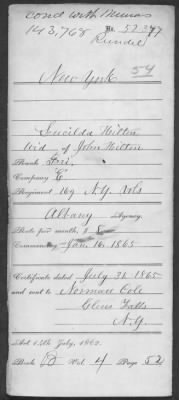 cond with Minors
143,768 No. 52377
Rundel
New York
54
Lucilda Hilton
Wid. of John Hilton
Rank Pri.
Company E
Regiment 169 N.Y. Vols
Albany Agency.
Rate per month, $ 8
Commencing Jan. 16, 1865
Certificate dated July 21, 1865
and sent to Norman Cole
Glens Falls
N.Y.
Act 14th July, 1862.
Book D Vol. 4 Page 52